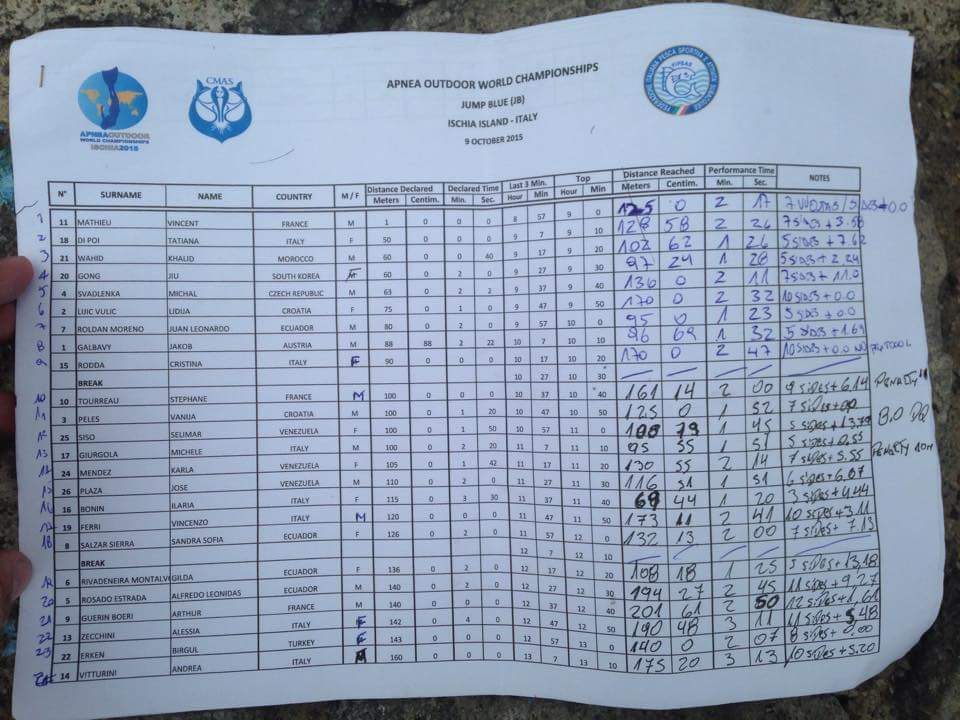 APNEA OUTDOOR WORLD CHAMPIONSHIPS
JUMP BLUE (JB)
ISCHIA ISLAND - ITALY
9 OCTOBER 2015
APNEAOUTDOOR
WORLD CHAMPIONSHIPS
ISCHIA2015
CMAS
FIPSAS
N° SURNAME NAME COUNTRY M / F Distance Declared Declared Time Last 3 Min. Top Distance Reached Performance Time NOTES
Meters Centim. Min. Sec. Hour Min Hour Min Meters Centim. Min. Sec.
1 11 MATHIEU VINCENT FRANCE M 1 0 0 0 8 57 9 0 125 0 2 17
2 18 DI POI TATIANA ITALY F 50 0 0 0 9 7 9 10 128 58 2 26 7 SIDES + 3.58
3 21 WAHID KHALID MOROCCO M 60 0 0 40 9 17 9 20 102 62 1 26 5 SIDES + 7.62
4 20 GONG JIU SOUTH KOREA F 60 0 2 0 9 27 9 30 97 24 1 28 5 SIDES + 2.24
5 4 SVADLENKA MICHAL CZECH REPUBLIC M 63 0 2 2 9 37 9 40 136 0 2 11 7 SIDES + 11.0
6 2 LUIC VULIC LIDIJA CROATIA F 75 0 1 0 9 47 9 50 170 0 2 32 10 SIDES + 0.0
7 7 ROLDAN MORENO JUAN LEONARDO ECUADOR M 80 0 2 0 9 57 10 0 95 0 1 23 5 SIDES + 0.0
8 1 GALBAVY JAKOB AUSTRIA M 88 88 2 22 10 7 10 10 96 69 1 32 5 SIDES + 1.69
9 15 RODDA CRISTINA ITALY F 90 0 0 0 10 17 10 20 170 0 2 47 10 SIDES + 0.0 NO PROTOCOL
BREAK 10 27 10 30
10 10 TOURREAU STEPHANE FRANCE M 100 0 0 0 10 37 10 40 161 14 2 00 9 sides + 6.14 Penalty
11 3 PELES VANIJA CROATIA M 100 0 1 20 10 47 10 50 125 0 1 52 7 sides + 00
12 25 SISO SELIMAR VENEZUELA F 100 0 1 50 10 57 11 0 108 79 1 45 5 sides + 13.79 B.O DQ
13 17 GIURGOLA MICHELE ITALY M 100 0 2 0 11 7 11 10 95 55 1 51 5 sides + 0.55
14 24 MENDEZ KARLA VENEZUELA F 105 0 1 42 11 17 11 20 130 55 2 14 7 sides + 5.55 Penalty 10m
15 26 PLAZA JOSE VENEZUELA M 110 0 2 0 11 27 11 30 116 51 1 51 6 sides + 6.07
16 16 BONIN ILARIA ITALY F 115 0 3 30 11 37 11 40 69 44 1 20 3 sides + 4.44
17 19 FERRI VINCENZO ITALY M 120 0 0 0 11 47 11 50 173 11 2 41 10 sides + 3.11
18 8 SALZAR SIERRA SANDRA SOFIA ECUADOR F 126 0 2 0 11 57 12 0 132 13 2 00 7 sides + 7.13
BREAK 12 7 12 10
19 6 RIVADENEIRA MONTALV GILDA ECUADOR F 136 0 2 0 12 17 12 20 108 18 1 25 5 sides + 13.18
20 5 ROSADO ESTRADA ALFREDO LEONIDAS ECUADOR M 140 0 2 0 12 27 12 30 194 27 2 45 11 sides + 9.27
21 9 GUERIN BOERI ARTHUR FRANCE M 140 0 0 0 12 37 12 40 201 61 2 50 12 sides + 1.61
22 13 ZECCHINI ALESSIA ITALY F 142 0 4 0 12 47 12 50 190 48 3 11 11 sides + 5.48
23 22 ERKEN BIRGUL TURKEY F 143 0 0 0 12 57 13 0 140 0 2 07 8 sides + 0.00
14 VITTURINI ANDREA ITALY M 160 0 0 0 13 7 13 10 175 20 3 13 10 sides + 5.20